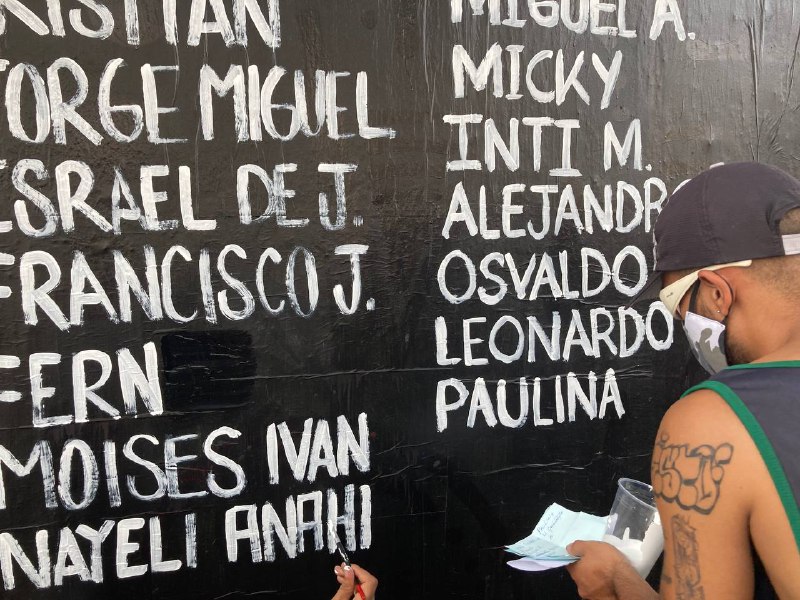 JORGE MIGUEL
ISRAEL DE J.
FRANCISCO J.
FERN
MOISES IVAN
NAYELI ANAHI
MIGUEL A.
MICKY
INTI M.
ALEJANDRO
OSVALDO
LEONARDO
PAULINA